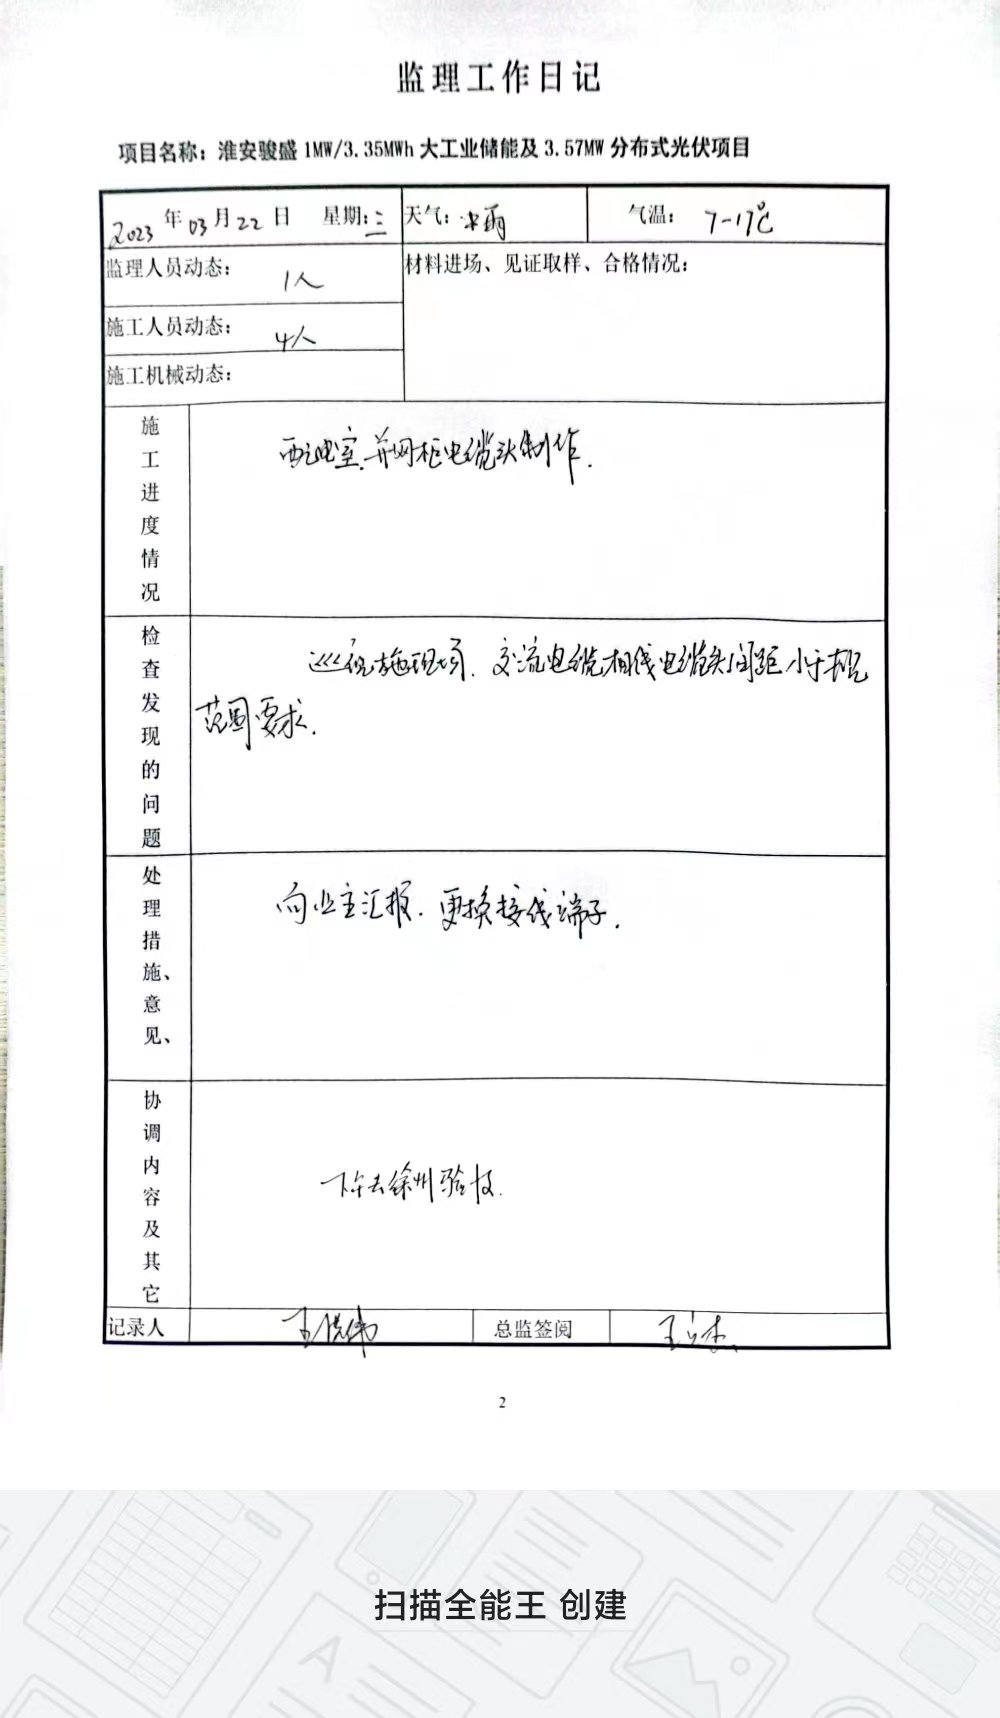 监理工作日记
项目名称：淮安骏盛1MW/3.35MWh大工业储能及3.57MW分布式光伏项目
2023年03月22日 星期:三 天气: 雨 气温: 7-17℃
监理人员动态: 1人 材料进场、见证取样、合格情况:
施工人员动态: 4人
施工机械动态:
施工进度情况
配电室.并网柜电缆头制作.
检查发现的问题
巡视施工现场.交流电缆相线电缆头间距小于规
范围要求.
处理措施、意见、
向业主汇报.更换接线端子.
协调内容及其它
下午去徐州验收.
记录人 王 伟 总监签阅 王
2
扫描全能王 创建